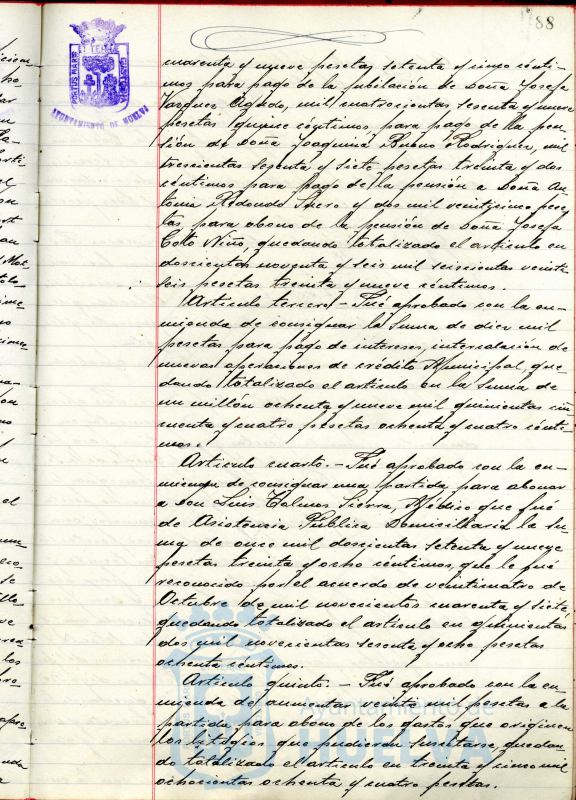 88
AYUNTAMIENTO DE HUELVA
cuarenta y nueve pesetas setenta y cinco cénti-
mos para pago de la jubilación de Doña Josefa
Vazquez Agudo, mil cuatrocientas sesenta y nueve
pesetas quince céntimos, para pago de la pen-
sión de Doña Joaquina Bueno Rodriguez, mil
trescientas sesenta y siete pesetas treinta y dos
céntimos para pago de la pensión a Doña An-
tonia Redondo y dos mil veinticinco pese-
tas para abono de la pensión de Doña Josefa
Niño, quedando totalizado el articulo en
doscientas noventa y seis mil seiscientas veinti-
seis pesetas treinta y nueve céntimos.
Articulo tercero.- Fué aprobado con la en-
mienda de consignar la suma de diez mil
pesetas para pago de intereses, intercalación de
nuevas operaciones de crédito Municipal, que-
dando totalizado el articulo en la suma de
un millón ochenta y nueve mil quinientas cin-
cuenta y cuatro pesetas ochenta y cuatro cénti-
mos.
Articulo cuarto.- Fué aprobado con la en-
mienda de consignar una partida para abonar
a Don Luis Sierra, Médico que fué
de Asistencia Pública Domiciliaria la su-
ma de once mil doscientas setenta y nueve
pesetas treinta y ocho céntimos, que le fué
reconocido por el acuerdo de veinticuatro de
Octubre de mil novecientos cuarenta y siete,
quedando totalizado el articulo en quinientas
dos mil novecientas sesenta y ocho pesetas
ochenta céntimos.
Articulo quinto.- Fué aprobado con la en-
mienda de aumentar veinticinco pesetas a la
partida para abono de los gastos que originen
los litigios que pudieran suscitarse, quedan-
do totalizado el articulo en treinta y cinco mil
ochocientas ochenta y cuatro pesetas.
Ayuntamiento de
HUELVA